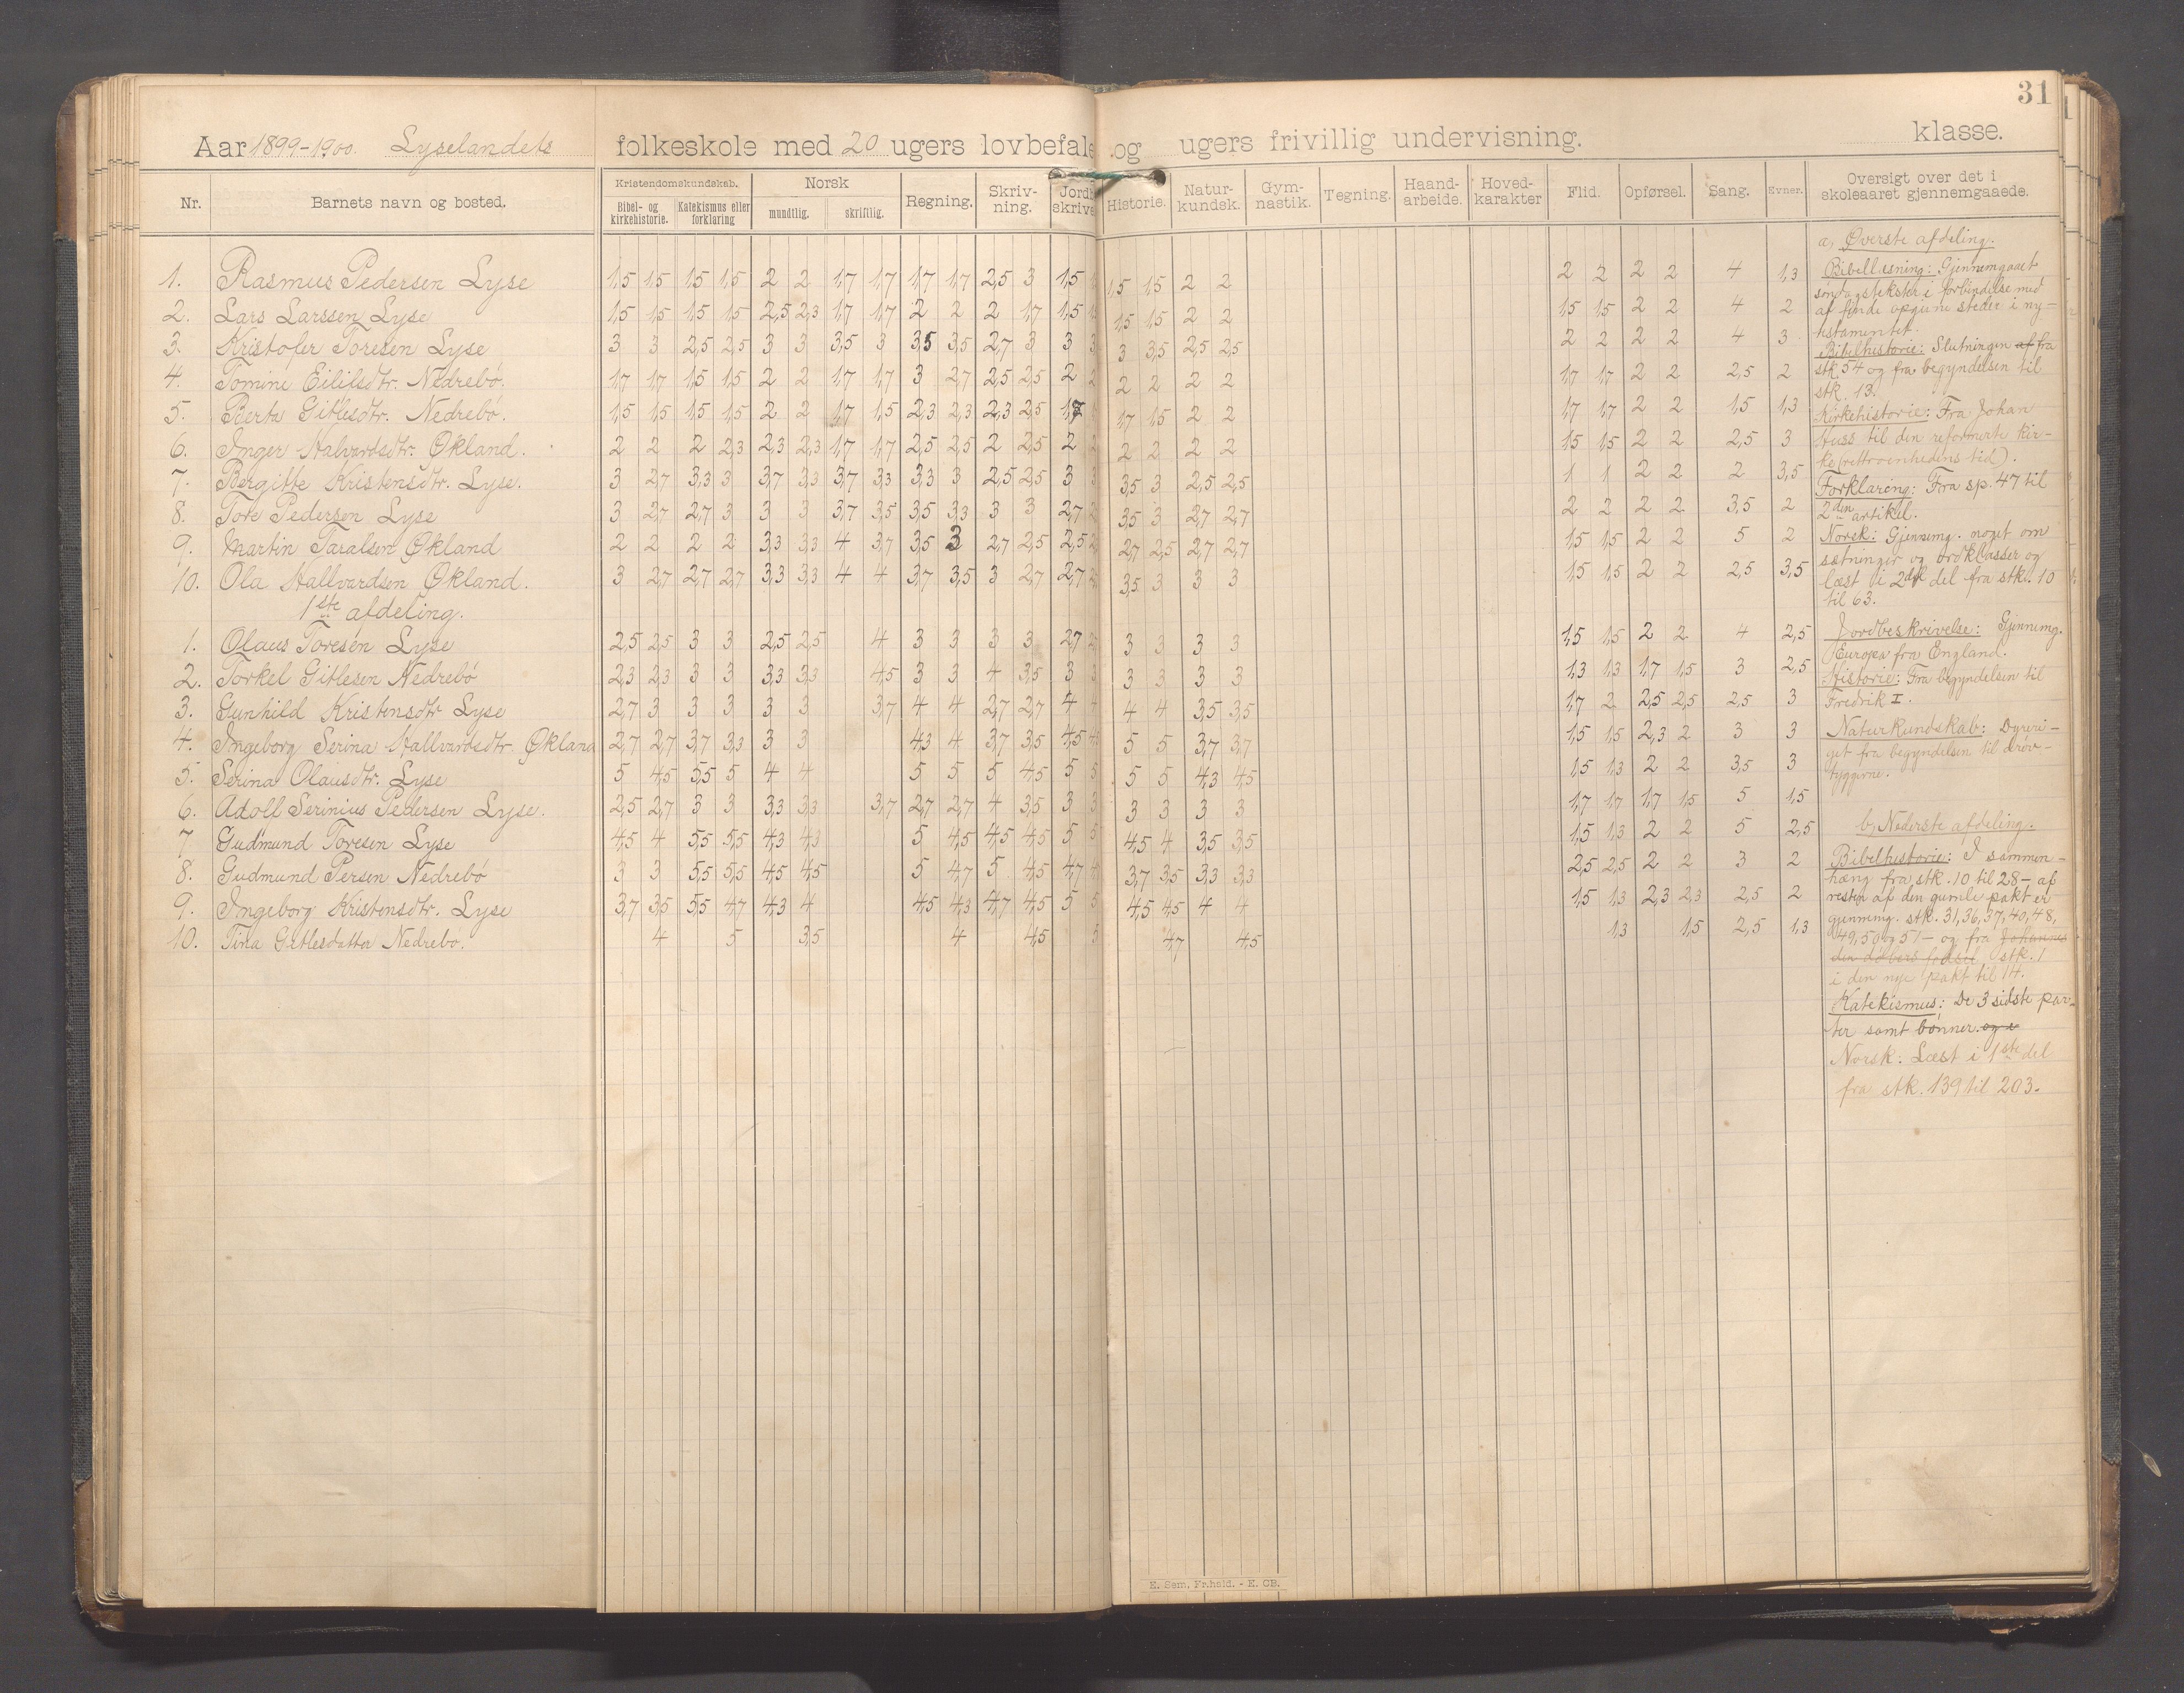 31
Aar 1899-1900. Lyselandets folkeskole med 20 ugers lovbefale og ugers frivillig undervisning. klasse.
Nr. Barnets navn og bosted. Kristendomskundskab. Bibel- og kirkehistorie. Katekismus eller forklaring Norsk mundtlig. skriftlig. Regning. Skriv-ning. Jordb skrive Historie. Natur-kundsk. Gym-nastik. Tegning. Haand-arbeide. Hoved-karakter Flid. Opførsel. Sang. Evner. Oversigt over det i skoleaaret gjennemgaaede.
1. Rasmus Pedersen Lyse 1,5 1,5 1,5 1,5 2 2 1,7 1,7 1,7 1,7 2,5 3 1,5 1,5 1,5 2 2 2 2 2 2 4 1,3
2. Lars Larssen Lyse 1,5 1,5 1,5 1,5 2,5 2,3 1,7 1,7 2 2 2 1,7 1,5 1,5 1,5 2 2 1,5 1,5 2 2 4 2
3. Kristofer Toresen Lyse 3 3 2,5 2,5 3 3 3,5 3 3,5 3,5 2,7 3 3 3 3,5 2,5 2,5 2 2 2 2 4 3
4. Tomine Eililsdtr. Nedrebø. 1,7 1,7 1,5 1,5 2 2 1,7 1,7 3 2,7 2,5 2,5 2 2 2 2 2 1,7 1,7 2 2 2,5 2
5. Berta Gitlesdtr. Nedrebø. 1,5 1,5 1,5 1,5 2 2 1,7 1,5 2,3 2,3 2,3 2,5 1,7 1,7 1,5 2 2 1,7 1,7 2 2 1,5 1,3
6. Inger Halvardsdtr. Økland. 2 2 2 2,3 2,3 2,3 1,7 1,7 2,5 2,5 2 2,5 2 2 2 2 2 1,5 1,5 2 2 2,5 3
7. Bergitte Kristensdtr. Lyse. 3 2,7 3,3 3 3,7 3,3 3,7 3,3 3,3 3 2,5 2,5 3 3,5 3 2,5 2,5 1 1 2 2 2 3,5
8. Tore Pedersen Lyse 3 2,7 2,7 3 3 3 3,7 3,5 3,5 3,3 3 3 2,7 3,5 3 2,7 2,7 2 2 2 2 3,5 2
9. Martin Taralsen Økland 2 2 2 2 3,3 3,3 4 3,7 3,5 3 2,7 2,5 2,5 2,7 2,5 2,7 2,7 1,5 1,5 2 2 5 2
10. Ola Hallvardsen Økland. 3 2,7 2,7 2,7 3,3 3,3 4 4 3,7 3,5 3 2,7 2,7 3,5 3 3 3 1,5 1,5 2 2 2,5 3,5
1ste afdeling.
1. Olaus Toresen Lyse 2,5 2,5 3 3 2,5 2,5 4 3 3 3 3 2,7 3 3 3 3 1,5 1,5 2 2 4 2,5
2. Torkel Gitlesen Nedrebø 2,3 2,3 3 3 3,3 3,3 4,5 3 3 4 3,5 3 3 3 3 3 1,3 1,3 1,7 1,5 3 2,5
3. Gunhild Kristensdtr Lyse 2,7 3 3 3 3 3 3,7 4 4 2,7 2,7 4 4 4 3,5 3,5 1,7 2 2,5 2,5 2,5 3
4. Ingeborg Serina Hallvardsdtr. Økland 2,7 2,7 3,7 3,3 3 3 4,3 4 3,7 3,5 4,5 5 5 3,7 3,7 1,5 1,5 2,3 2 3 3
5. Serina Olausdtr. Lyse 5 4,5 5,5 5 4 4 5 5 5 4,5 5 5 5 4,3 4,5 1,5 1,3 2 2 3,5 3
6. Adolf Serinius Pedersen Lyse. 2,5 2,7 3 3 3,3 3,3 3,7 2,7 2,7 4 3,5 3 3 3 3 3 1,7 1,7 1,7 1,5 5 1,5
7 Gudmund Toresen Lyse 4,5 4 5,5 5,5 4,3 4,3 5 4,5 4,5 4,5 5 4,5 4 3,5 3,5 1,5 1,3 2 2 5 2,5
8. Gudmund Persen Nedrebø 3 3 5,5 5,5 4,5 4,5 5 4,7 5 4,5 4,7 3,7 3,5 3,3 3,3 2,5 2,5 2 2 3 2
9. Ingeborg Kristensdtr. Lyse 3,7 3,5 5,5 4,7 4,3 4 4,5 4,3 4,7 4,5 5 4,5 4,5 4 4 1,5 1,3 2,3 2,3 2,5 2
10. Tina Gitlesdatter Nedrebø. 4 5 3,5 4 4,5 4,7 4,5 1,3 1,5 2,5 1,3
a, Øverste afdeling.
Bibellæsning: Gjennemgaaet
søndagstekster i forbindelse med
af finde opgivne steder i ny-
testamentet.
Bibelhistorie: Slutningen af fra
stk. 54 og fra begyndelsen til
stk. 13.
Kirkehistorie: Fra Johan
Huss til den reformerte kir-
ke (rettroenhedens tid).
Forklaring: Fra sp. 47 til
2den artikel.
Norsk: Gjennemg. noget om
sætninger og ordklasser og
læst i 2den del fra stk. 10
til 63.
Jordbeskrivelse: Gjennemg.
Europa fra England.
Historie: Fra begyndelsen til
Fredrik I.
Naturkundskab: Dyreri-
get fra begyndelsen til drøv-
tyggerne.
b, Nederste afdeling.
Bibelhistorie: I sammen-
hæng fra stk. 10 til 28 - af
resten af den gamle pakt er
gjennemg. stk. 31, 36, 37, 40, 48,
49, 50 og 51 - og fra Johannes
den døbers fødsel stk. 1
i den nye pakt til 14.
Katekismus: De 3 sidste par-
ter samt bønner. og e
Norsk: Læst i 1ste del
fra stk. 139 til 203.
E. Sem, Fr.hald. - E. CB.